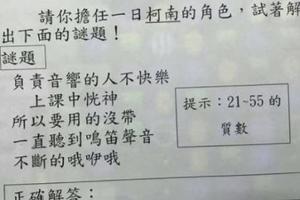 請你擔任一日柯南的角色，試著解
出下面的謎題！
謎題
負責音響的人不快樂
上課中恍神
所以要用的沒帶
一直聽到鳴笛聲音
不斷的哦咿哦
提示：21~55的
質數
正確解答：